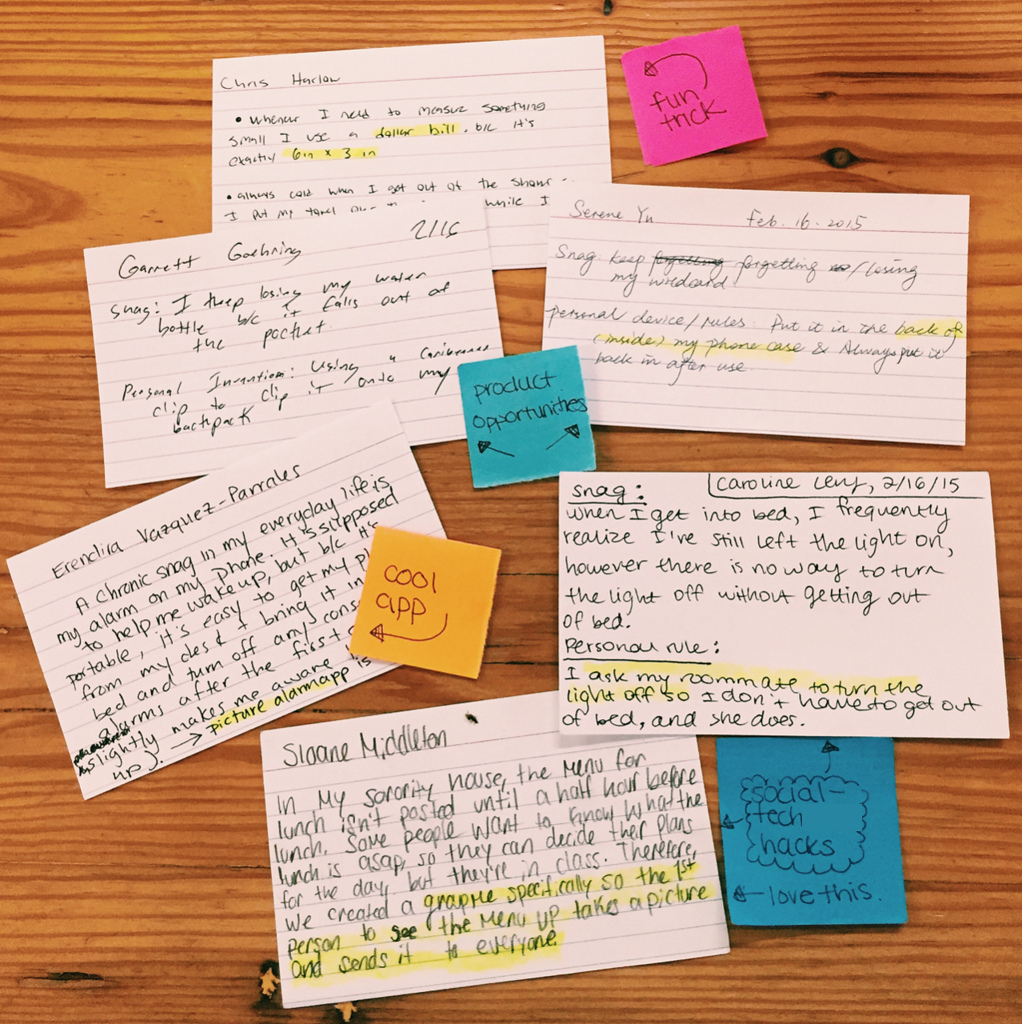 Chris Harlow
• whenever I need to measure something
small I use a dollar bill. b/c it's
exactly 6in x 3 in
• always cold when I get out of the shower -
I put my towel while I
fun
trick
Garrett Goehring 2/16
Snag: I keep losing my water
bottle b/c it falls out of
the pocket
Personal Invention: Using a Caribeener
clip to clip it onto my
backpack
Serene Yu Feb. 16. 2015
Snag: keep forgetting forgetting / losing
my wildcard
personal device/rules: Put it in the back of
(inside) my phone case & Always put it
back in after use.
product
opportunities
Erendira Vazquez-Parrales
A chronic snag in my everyday life is
my alarm on my phone. It's supposed
to help me wake up, but b/c it's
portable, it's easy to get my
from my desk & bring it in
bed and turn off any
alarms after the first
slightly makes me aware
up).
→ picture alarm app is
cool
app
snag: Caroline Leny, 2/16/15
When I get into bed, I frequently
realize I've still left the light on,
however there is no way to turn
the light off without getting out
of bed.
Personal rule:
I ask my roommate to turn the
light off so I don't have to get out
of bed, and she does.
Sloane Middleton
In My sorority house, the Menu for
lunch isn't posted until a half hour before
lunch. Some people want to know what the
lunch is asap, so they can decide ther plans
for the day, but they're in class. Therefore,
We created a grapme specifically so the 1st
person to see the Menu up takes a picture
and sends it to everyone.
social-
tech
hacks
love this.